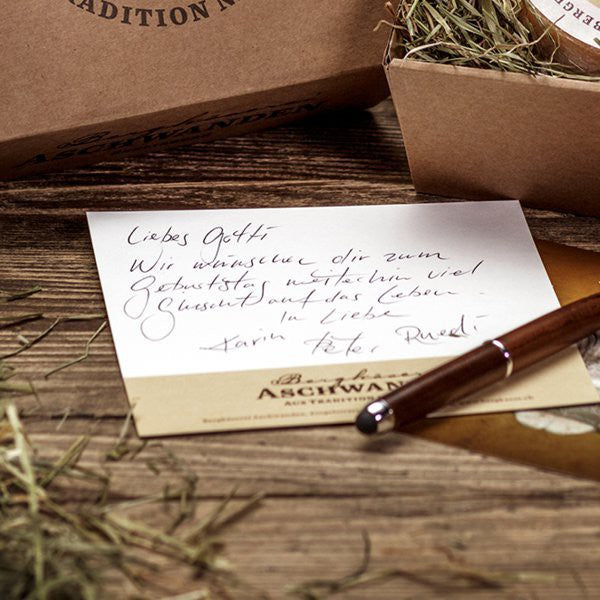 TRADITION N
ASCHWANDEN
BERG
Liebes Götti
Wir wünschen dir zum
Geburtstag weiterhin viel
Gluscht auf das Leben.
In Liebe
Karin Peter Ruedi
Bergkäserei
ASCHWANDE
AUS TRADITION
Bergkäserei Aschwanden,